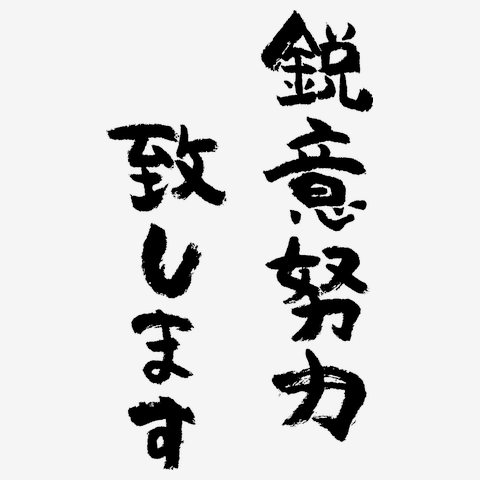 鋭意努力
致します